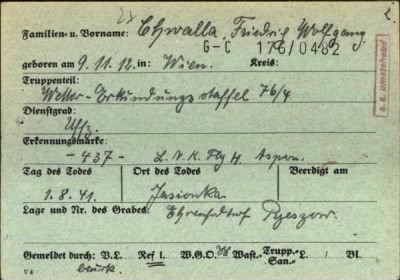 2.
Familien- u. Vorname: Chwalla, Friedrich Wolfgang
G-C 176/0482
geboren am 9.11.12. in: Wien. Kreis:
Truppenteil:
Wetter-Erkundungsstaffel 76/4
Dienstgrad:
Uffz.
Erkennungsmarke:
-437- L.N.K. Flg H. Aspern.
Tag des Todes Ort des Todes Beerdigt am
1.8.41. Jasionka
Lage und Nr. des Grabes: Ehrenfriedhof Rzeszow.
Gemeldet durch: V.L. Ref I. W.G.O. Wast.- Trupp.- San.- L. / Bl.
V 4
s. a. umstehend